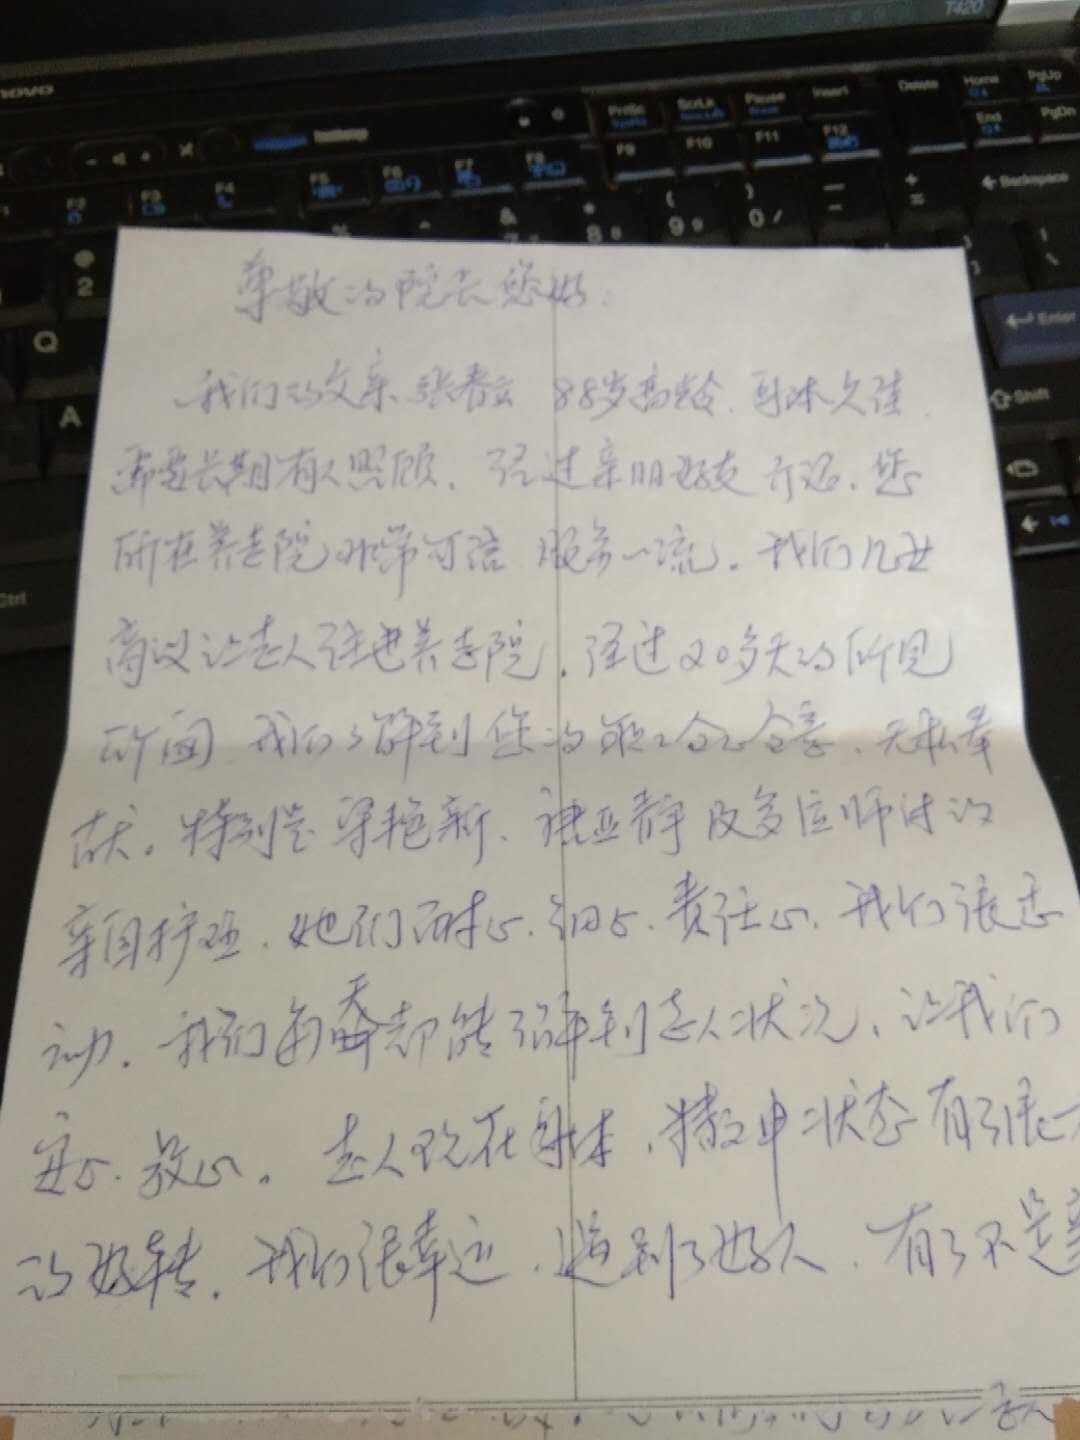 T420
lenovo
PrtSc ScrLk Pause Insert Delete Home PgUp
SysRq Break End PgDn
F2 F3 F4 F5 F6 F7 F8 F9 F10 F11 F12
Backspace
Enter
Shift
Ctrl
Q
A
尊敬的院长您好:
我们的父亲 88岁高龄.身体欠佳.
需要长期有人照顾.经过亲朋好友介绍.您
所在养老院非常可信 服务一流.我们几世
商议让老人住进养老院.经过20多天的所见
所闻 我们了解到您的职工全心全意.无私奉
献.特别是梁艳新、 亚静及多位师傅的
亲自护理.她们耐心.细心.责任心.我们很感
动.我们每天都能了解到老人状况、让我们
安心.放心。老人现在身体.精神状态有了很大
的好转.我们很幸运.遇到了好人.有了不是亲